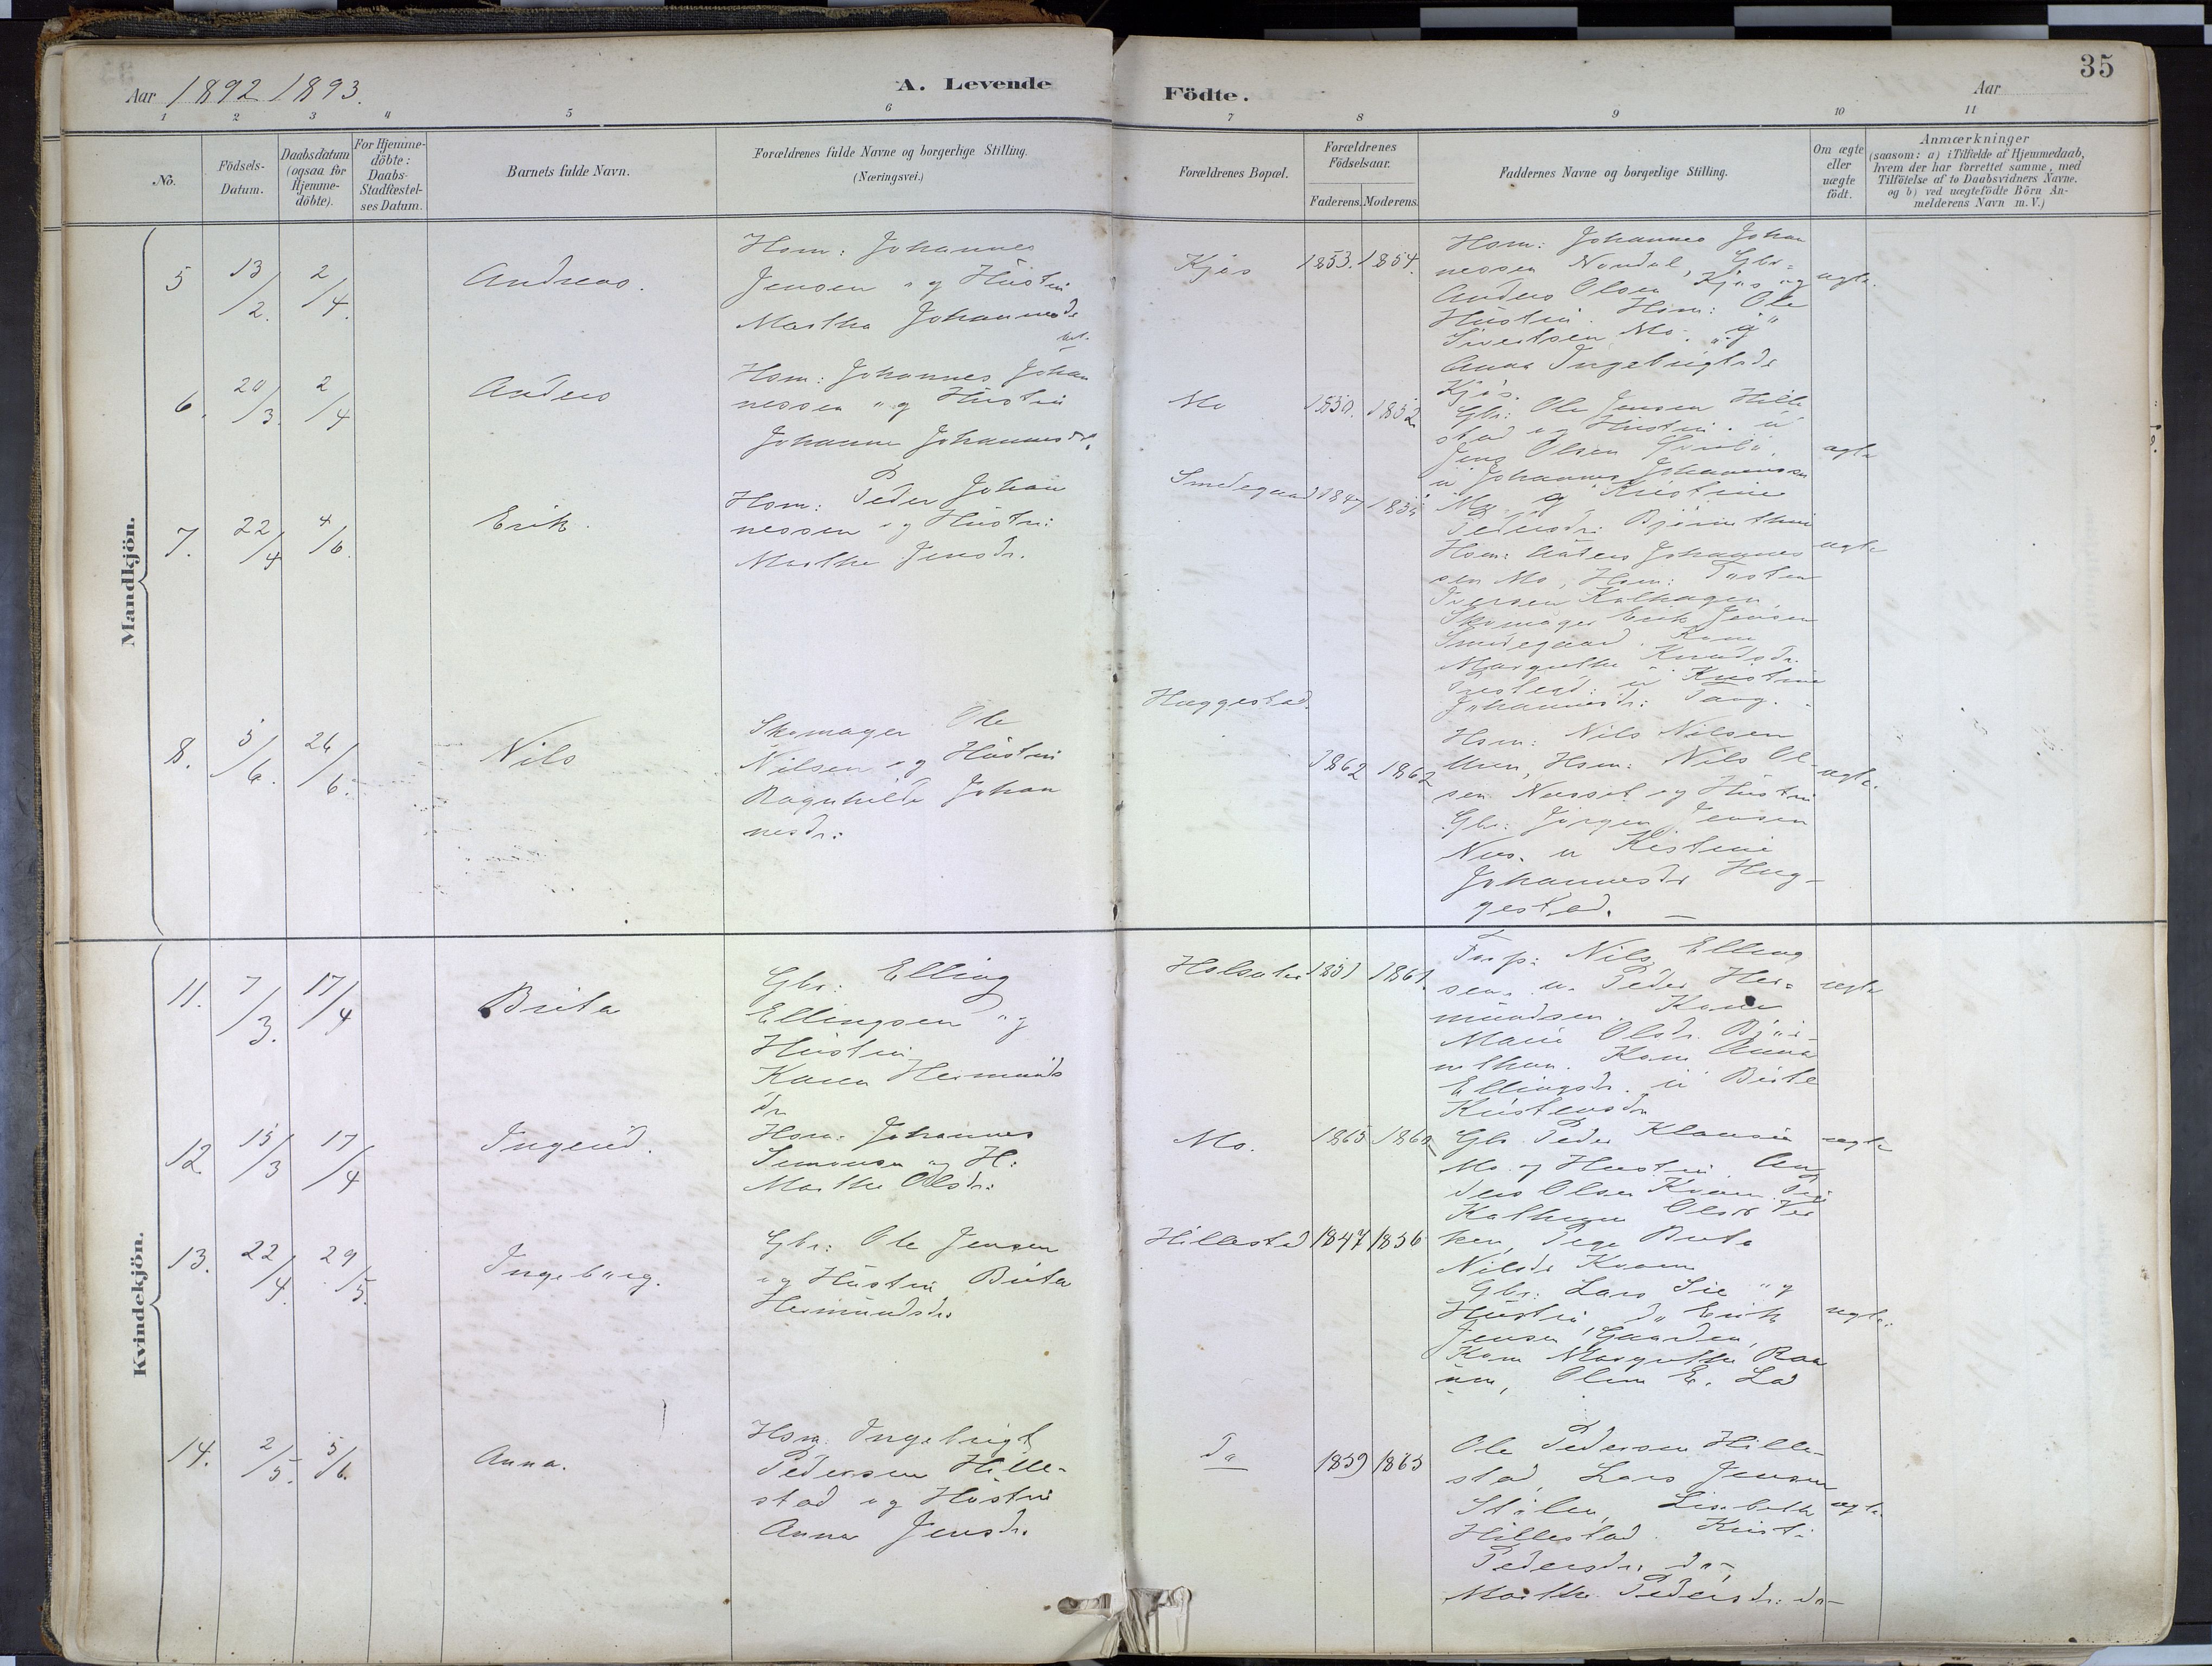 35
Aar 1892 1893.
A. Levende
Födte.
Aar
1 2 3 4 5 6 7 8 9 10 11
No.
Födsels-
Datum.
Daabsdatum
(ogsaa for
Hjemme-
döbte).
For Hjemme-
döbte:
Daabs-
Stadfæstel-
ses Datum.
Barnets fulde Navn.
Forældrenes fulde Navne og borgerlige Stilling.
(Næringsvei.)
Forældrenes Bopæl.
Forældrenes
Födselsaar.
Faderens.
Moderens.
Faddernes Navne og borgerlige Stilling.
Om ægte
eller
uægte
födt.
Anmærkninger
(saasom: a) i Tilfælde af Hjemmedaab,
hvem der har forrettet samme, med
Tilföielse af to Daabsvidners Navne.
og b) ved uægtefödte Börn An-
melderens Navn m. V.)
Mandkjön.
5 13/2. 2/4. Andreas.
Hsm: Johannes
Jensen og Hustru
Martha Johannesdr
Kjøs 1853. 1854.
Hsm: Johannes Johan
nessen Nondal, Gbr:
Anders Olsen Kjøs og
Hustru. Hsm: Ole
Sivertsen Mo. og
Anna Ingebrigtsdr
Kjøs.
ægte.
6. 20/3. 2/4 Anders
Hsm: Johannes Johan
nessen og Hustru
Johanne Johannesdr.
Mo 1850. 1852
Gbr: Ole Jensen Hille
stad og Hustru. u
Jens Olsen
u Johannes Johannessen
Mo. og Kristine
Pedersdr: Bjørnethun
ægte
7. 22/4 4/6. Erik.
Hsm: Peder Johan
nessen og Hustru:
Marthe Jensdr.
Smedegaard 1847
Hsm: Anders Johannes
sen Mo, Hsm: Torsten
Iversen Kalhagen,
Skomager Erik Jensen
Smedegaard. Kone
Margrethe Knudsdr.
u Kristine
Johannesdr: Tang.
ægte
8. 5/6. 26/6. Nils
Skomager Ole
Nilsen og Hustru
Ragnhilde Johan
nesdr:
Haggestad. 1862 1862
Hsm: Nils Nilsen
Uren, Hsm: Nils Ol-
sen Nesset og Hustru
Gbr: Jørgen Jensen
Nes. u Kistine
Johannesdr Hag-
gestad.
ægte.
Kvindekjön.
11. 7/3. 17/4 Brita
Gbr: Elling
Ellingsen og
Hustru
Karen Hermunds
dr
Holsæter 1851 1861.
Farp: Nils Elling
sen. u. Peder Her=
mundsen. Kone
Marie Olsdr. Bjør-
nethun. Kone Anna
Ellingsdr. u Beite
Kristensdr
ægte
12. 15/3 17/4 Ingerid.
Hsm: Johannes
Simonsen og H:
Marthe Olsdr:
Mo. 1865 1860
Gbr Peder Klausen
Mo og Hustru. An
ders Olsen Kvam. Pige
Kathrine Olsdr Ve
ken Pige Brita
Nilsdr Kvam
ægte
13. 22/4. 29/5. Ingebørg.
Gbr: Ole Jensen
og Hustru Brita
Hermundsdr
Hillestad 1847 1856
Gbr: Lars Lie og
Hustru do Erik
Jensen, Gaarden,
Kone Margrethe Raa
um, Oline E. Lad
ægte:
14. 2/5. 5/6. Anna.
Hsm: Ingebrigt
Pedersen Hille-
stad og Hustru
Anna Jensdr.
do 1859 1865
Ole Pedersen Hille-
stad, Lars Jensen
Stølen, Lisebethe
Hillestad. Kristi
Pedersdr: do-,
Marthe Pedersdr: do-
ægte.